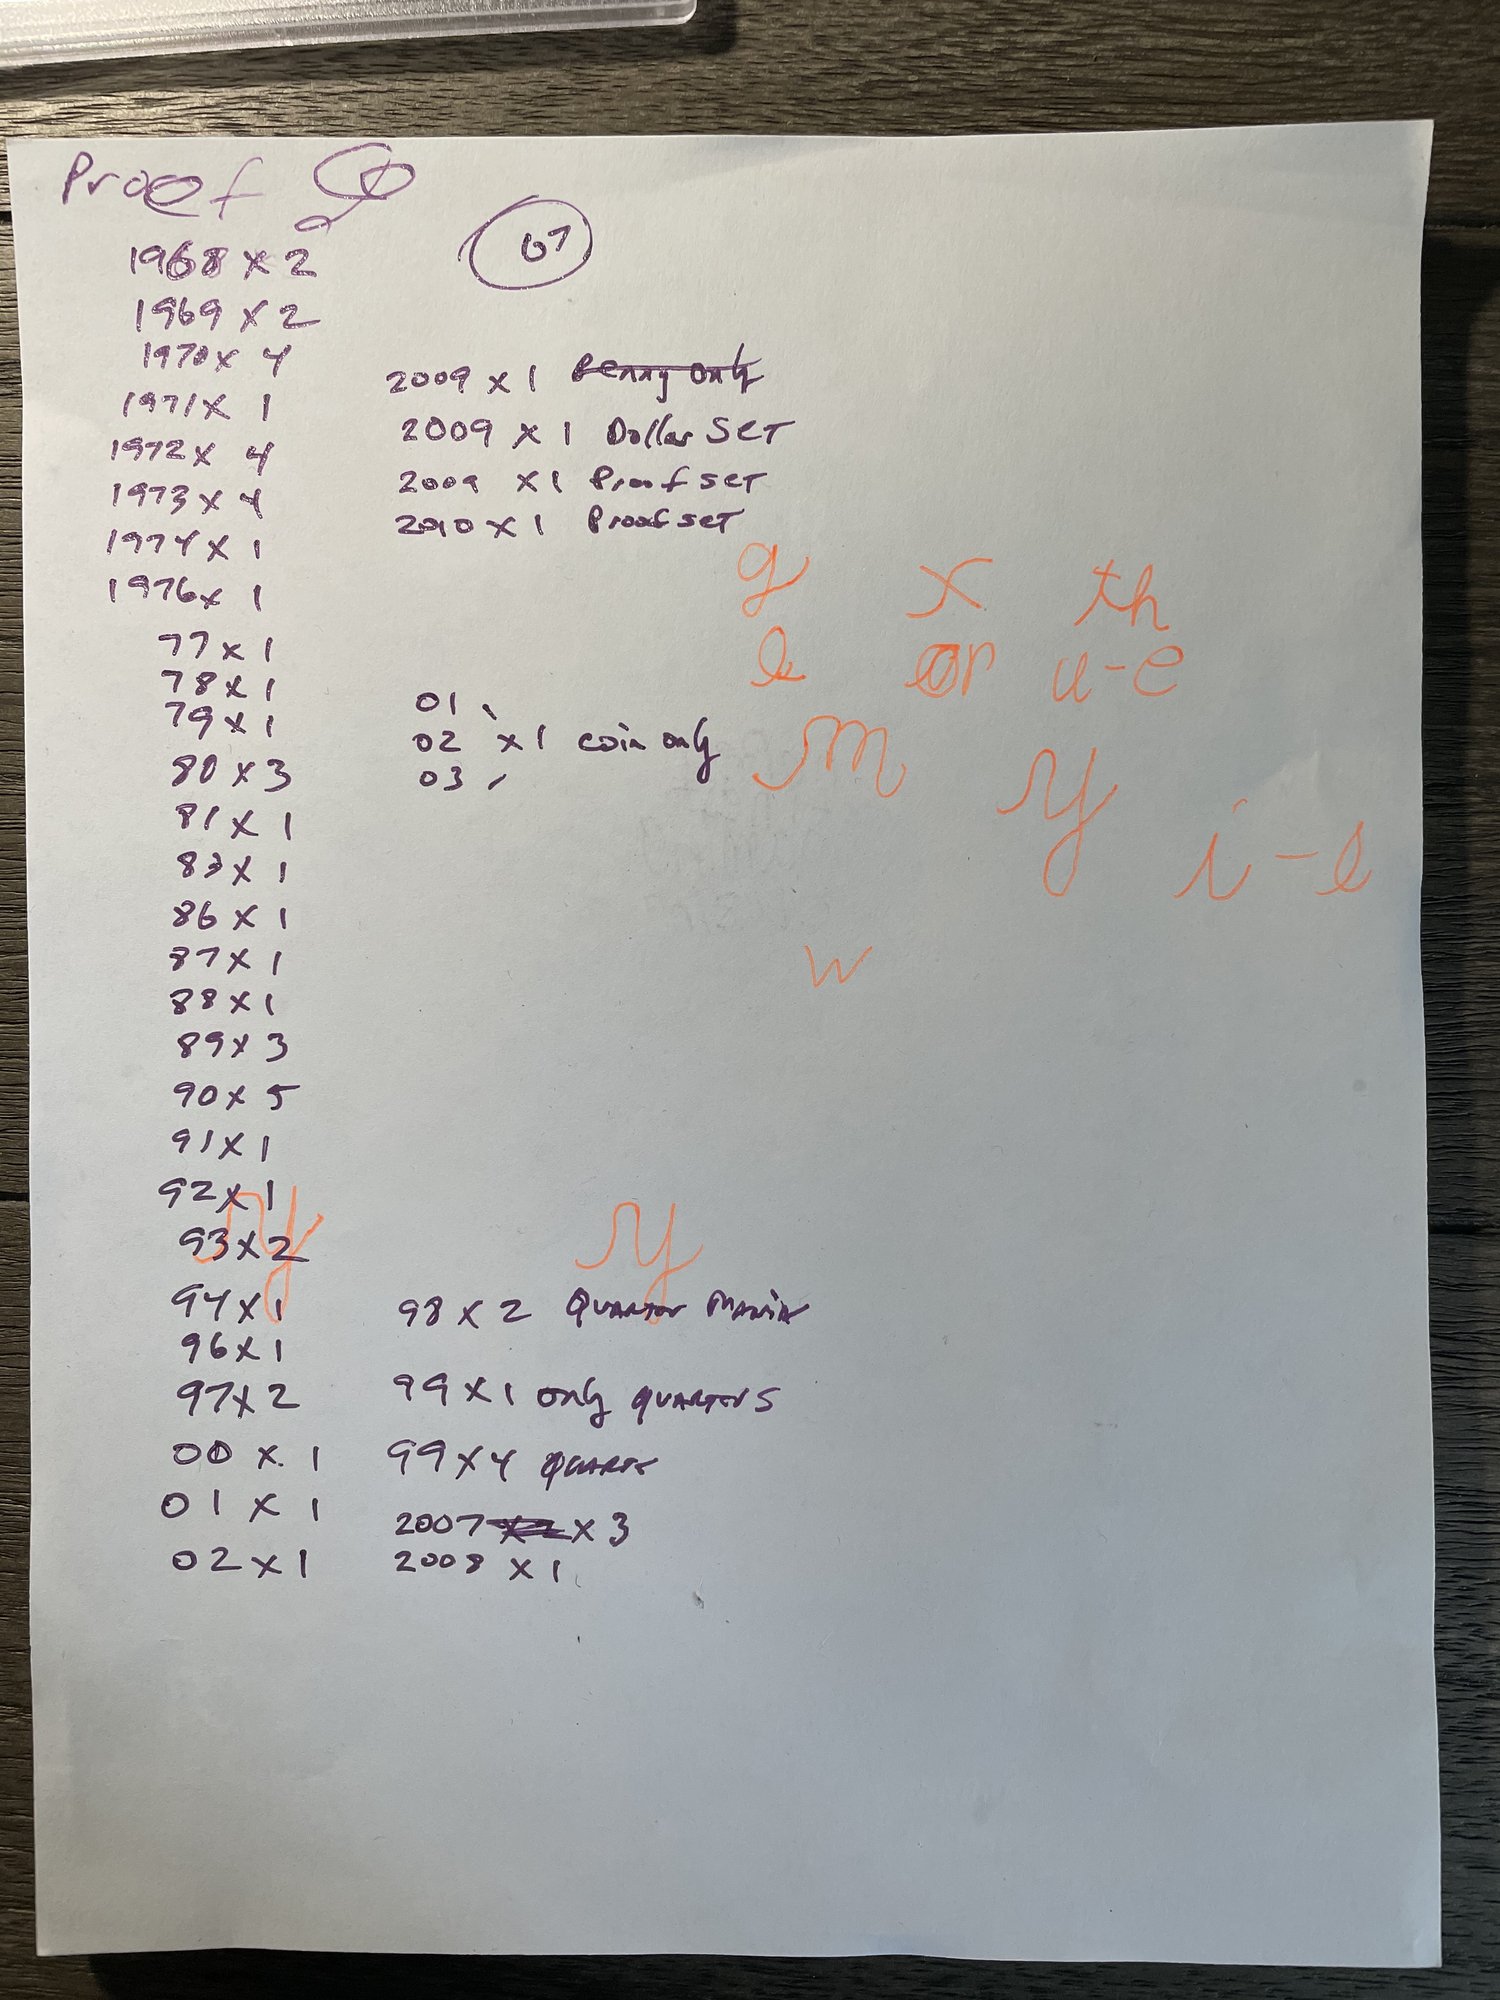 Proof
67
1968 x 2
1969 x 2
1970 x 4
1971 x 1
1972 x 4
1973 x 4
1974 x 1
1976 x 1
77 x 1
78 x 1
79 x 1
80 x 3
81 x 1
83 x 1
86 x 1
87 x 1
88 x 1
89 x 3
90 x 5
91 x 1
92 x 1
93 x 2
94 x 1
96 x 1
97 x 2
00 x 1
01 x 1
02 x 1
2009 x 1 Penny only
2009 x 1 Dollar SET
2009 x 1 Proof set
2010 x 1 Proof set
01
02 x 1 coin only
03
98 x 2 Quarter Mania
99 x 1 only quarters
99 x 4 Quarts
2007 x 3
2008 x 1
g x th
or u-e
m y
i-e
w
y y